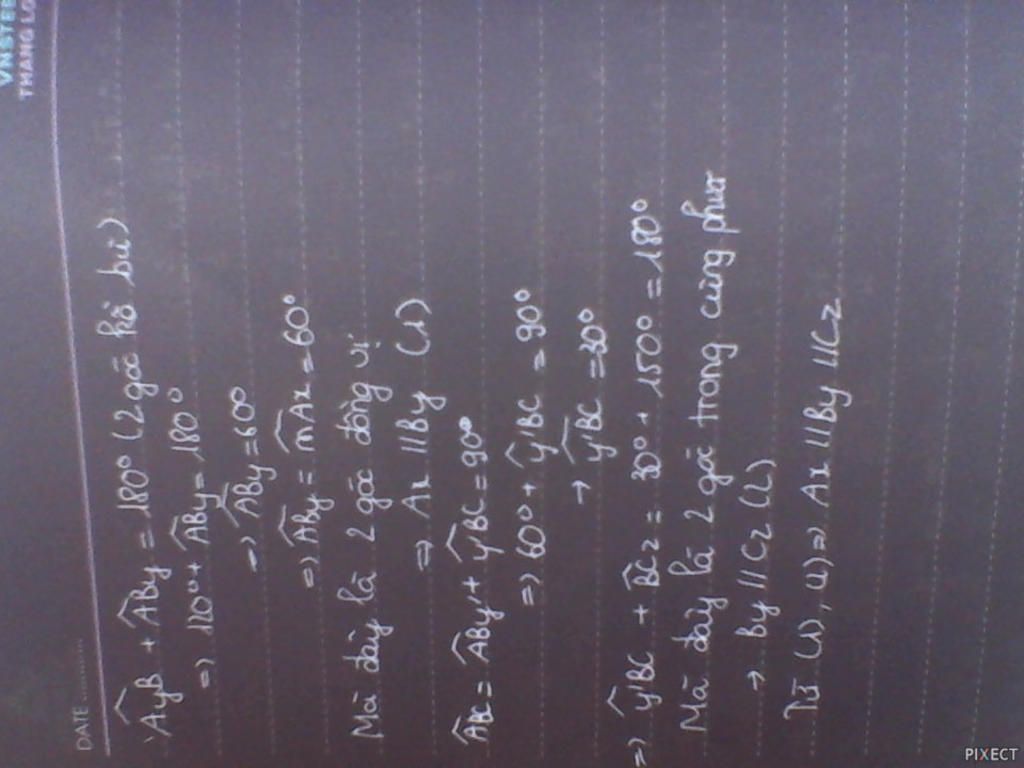 VNSTEE
THANG LO
DATE
AyB + ABy = 180° (2 góc kề bù)
=> 120° + ABy = 180°
=> ABy = 60°
=> ABy = mAx = 60°
Mà đây là 2 góc đồng vị
=> Ax // By (1)
ABC = ABy' + y'BC = 90°
=> 60° + y'BC = 90°
→ y'BC = 30°
=> y'BC + BCz = 30° + 150° = 180°
Mà đây là 2 góc trong cùng phía
→ By // Cz (2)
Từ (1), (2) => Ax // By // Cz
PIXECT